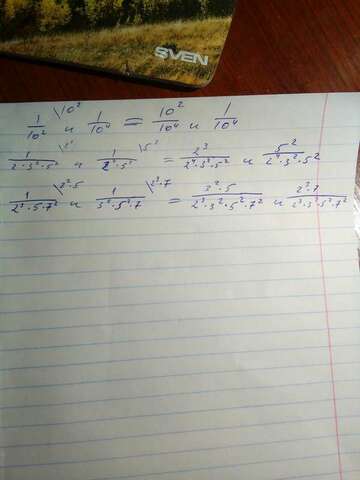 SVEN
1/10² \10² и 1/10⁴ = 10²/10⁴ и 1/10⁴
1/2·3²·5² \2³ и 1/2⁴·5² = 2³/2⁴·3²·5² и 5²/2⁴·3²·5²
1/2³·5·7² \3²·5 и 1/3²·5²·7 \2³·7 = 3²·5/2³·3²·5²·7² и 2³·7/2³·3²·5²·7²